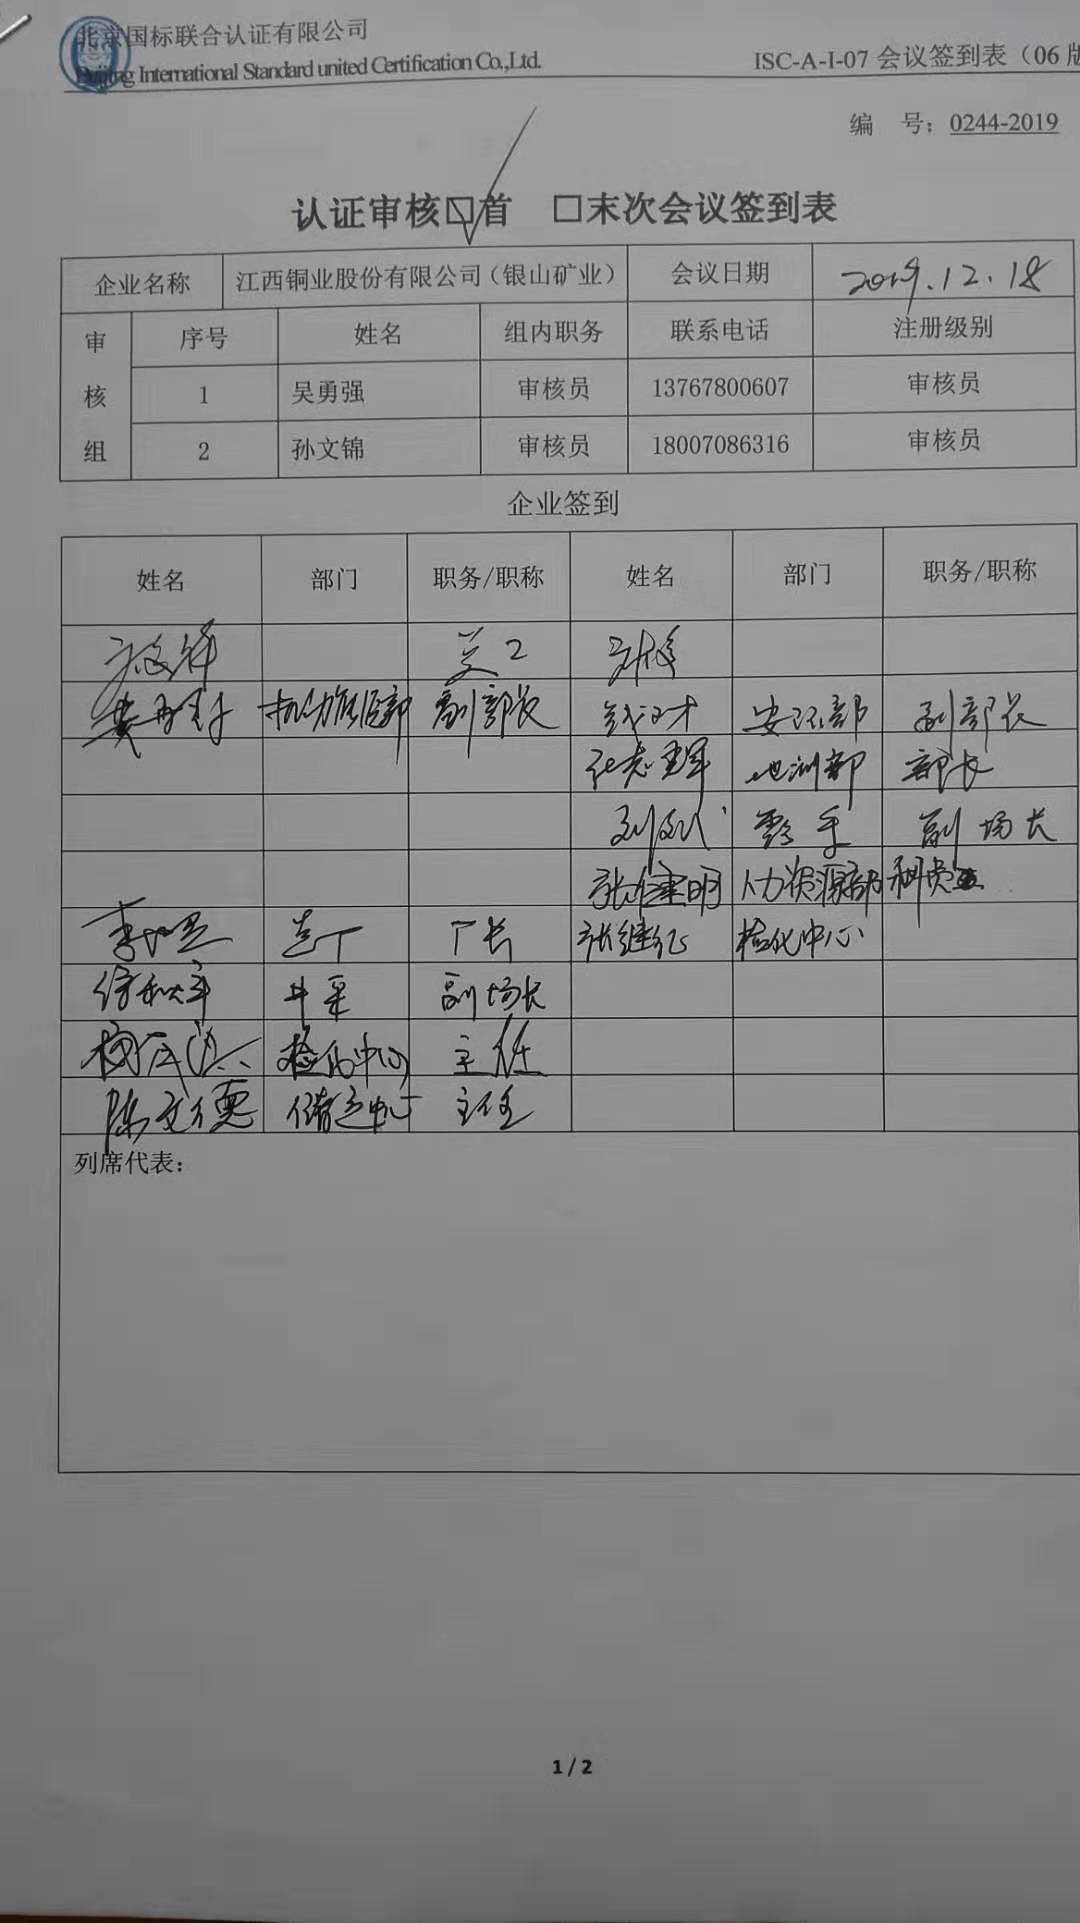 北京国标联合认证有限公司
Beijing International Standard united Certification Co.,Ltd.
ISC-A-I-07 会议签到表（06 版
编 号：0244-2019
认证审核□首 □末次会议签到表
企业名称 江西铜业股份有限公司（银山矿业） 会议日期 2019.12.18
审核组 序号 姓名 组内职务 联系电话 注册级别
1 吴勇强 审核员 13767800607 审核员
2 孙文锦 审核员 18007086316 审核员
企业签到
姓名 部门 职务/职称 姓名 部门 职务/职称
副部长 安环部 副部长
张志军 地测部 部长
副场长
张健明 人力资源部 科员
选厂 厂长 张继红 检化中心
井采 副场长
检化中心 主任
陈文德 储运中心 主任
列席代表：
1 / 2